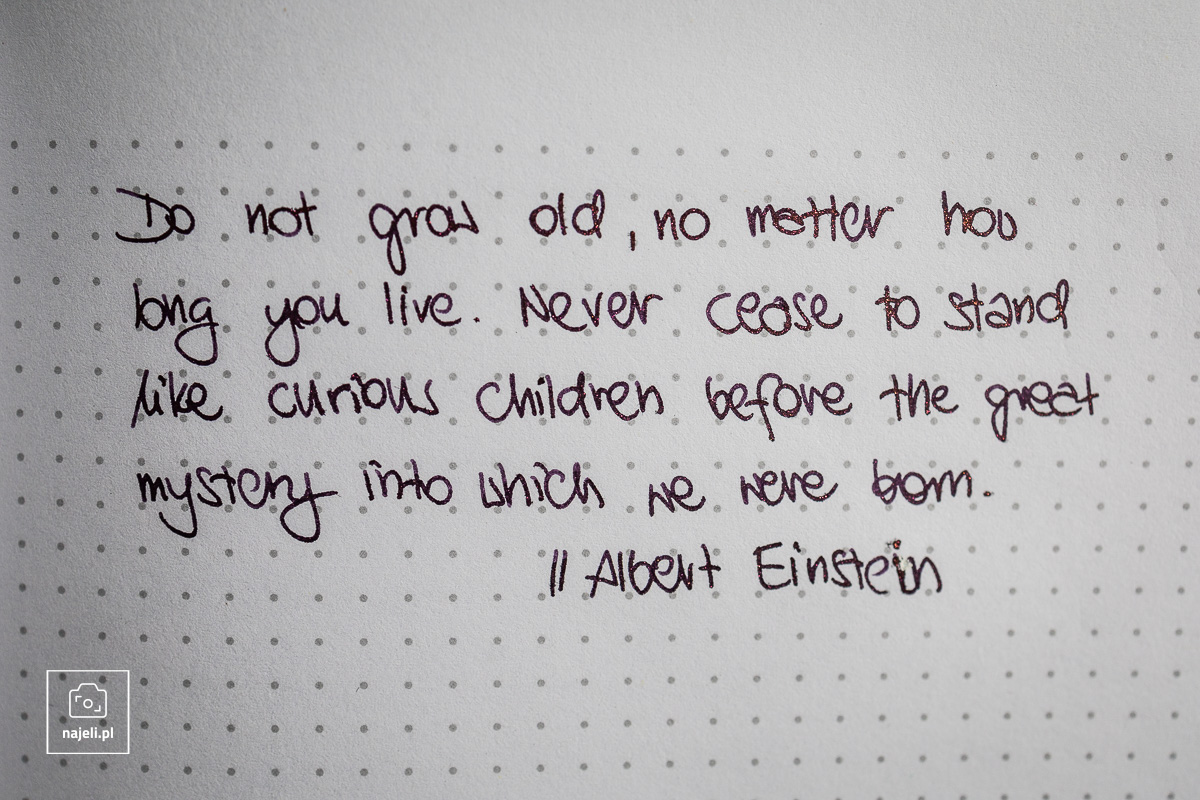 Do not grow old, no matter how
long you live. Never cease to stand
like curious children before the great
mystery into which we were born.
|| Albert Einstein
najeli.pl